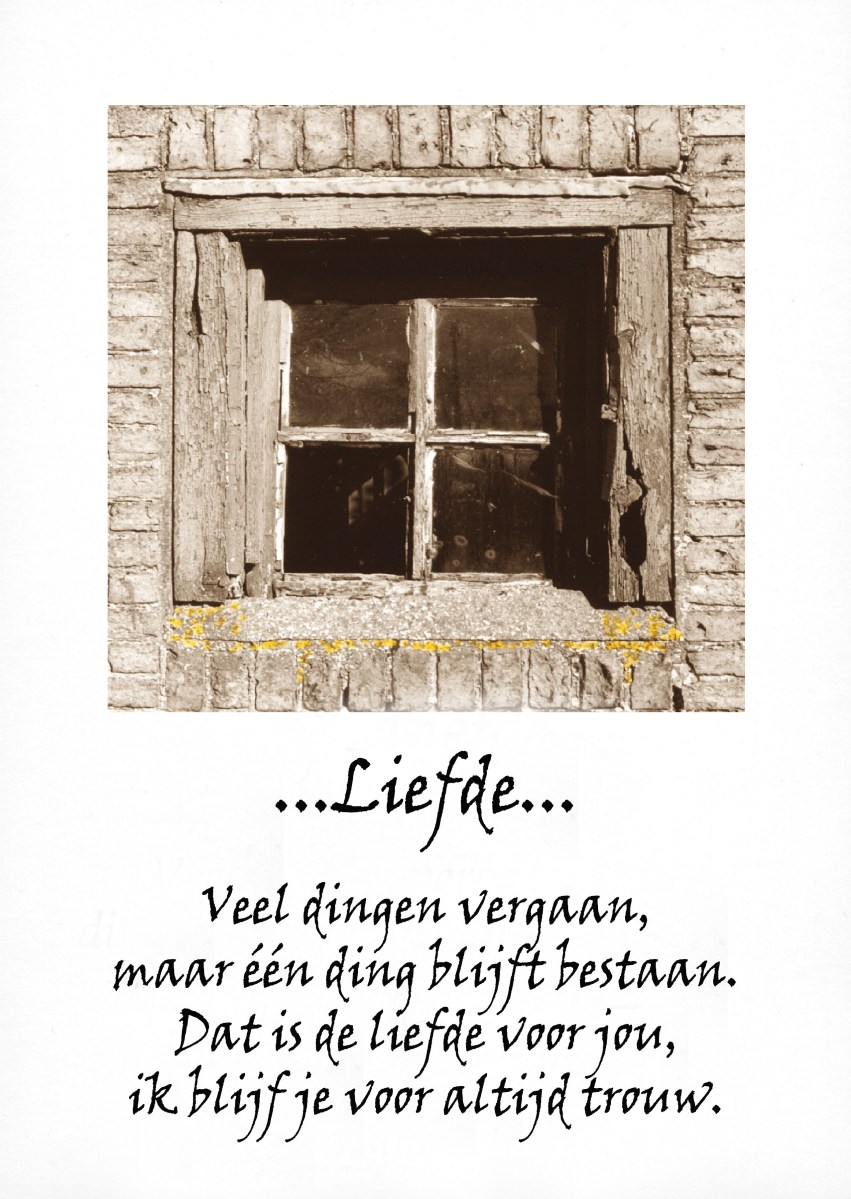 ...Liefde...
Veel dingen vergaan,
maar één ding blijft bestaan.
Dat is de liefde voor jou,
ik blijf je voor altijd trouw.